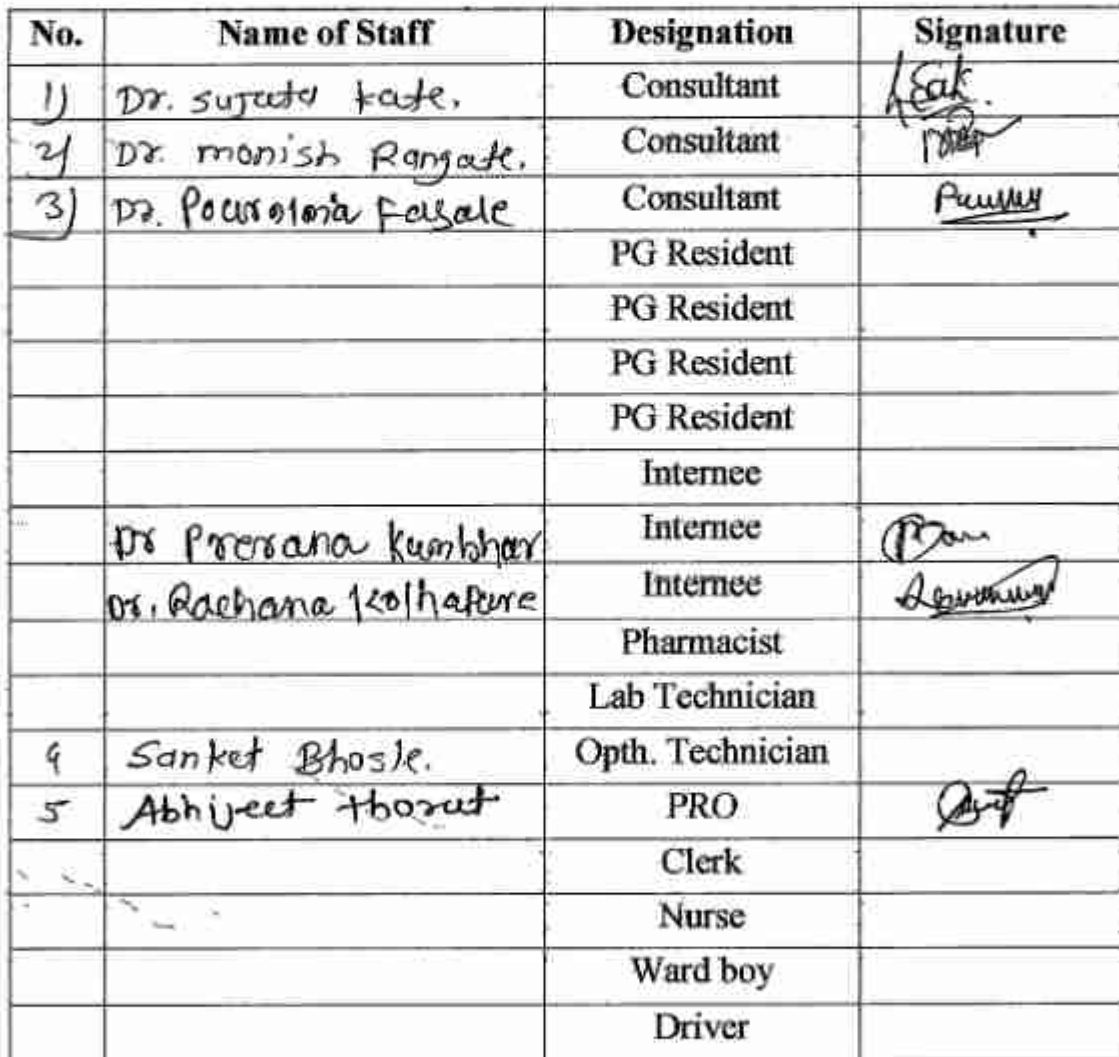 No. Name of Staff Designation Signature
1) Dr. sujata kate. Consultant
2) Dr. monish Rangate. Consultant
3) Dr. Consultant
PG Resident
PG Resident
PG Resident
PG Resident
Internee
Dr Prerana Kumbhar Internee
Dr. Rachana Kolhapure Internee
Pharmacist
Lab Technician
4 Sanket Bhosle. Opth. Technician
5 Abhijeet thorat PRO
Clerk
Nurse
Ward boy
Driver